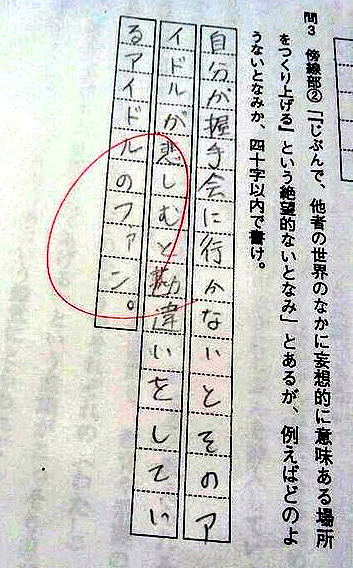 問3 傍線部②「『じぶんで、他者の世界のなかに妄想的に意味ある場所
をつくり上げる』という絶望的ないとなみ」とあるが、例えばどのよ
うないとなみか、四十字以内で書け。
自分が握手会に行かないとそのア
イドルが悲しむと勘違いをしてい
るアイドルのファン。